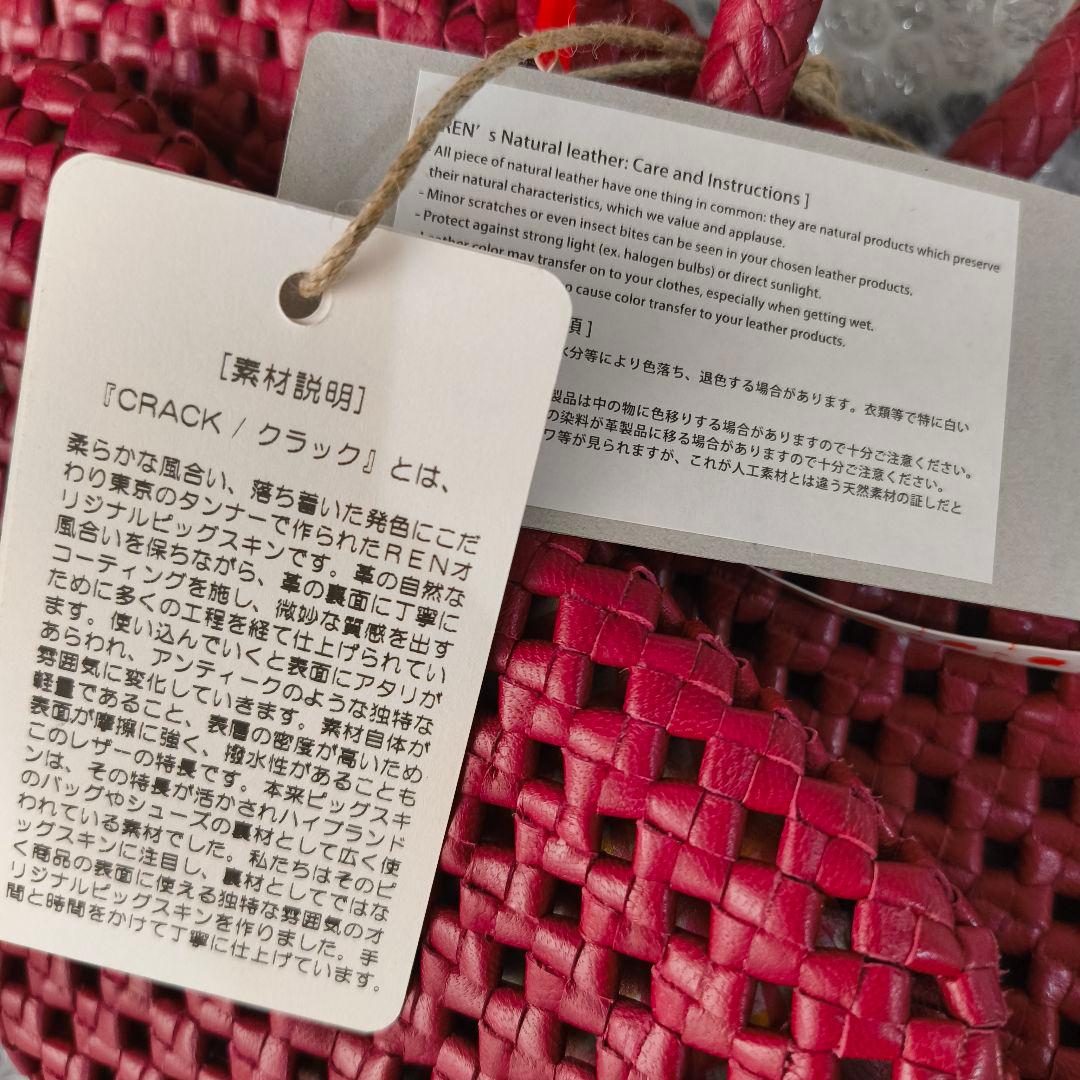 [素材説明]
『CRACK / クラック』とは、
柔らかな風合い、落ち着いた発色にこだ
わり東京のタンナーで作られたRENオ
リジナルピッグスキンです。革の自然な
風合いを保ちながら、革の裏面に丁寧に
コーティングを施し、微妙な質感を出す
ために多くの工程を経て仕上げられてい
ます。使い込んでいくと表面にアタリが
あらわれ、アンティークのような独特な
雰囲気に変化していきます。素材自体が
軽量であること、表層の密度が高いため
表面が摩擦に強く、撥水性があることも
このレザーの特長です。本来ピッグスキ
ンは、その特長が活かされハイブランド
のバッグやシューズの裏材として広く使
われている素材でした。私たちはそのピ
ッグスキンに注目し、裏材としてではな
く商品の表面に使える独特な雰囲気のオ
リジナルピッグスキンを作りました。手
間と時間をかけて丁寧に仕上げています。
REN’s Natural leather: Care and Instructions ]
All piece of natural leather have one thing in common: they are natural products which preserve
their natural characteristics, which we value and applause.
- Minor scratches or even insect bites can be seen in your chosen leather products.
- Protect against strong light (ex. halogen bulbs) or direct sunlight.
Leather color may transfer on to your clothes, especially when getting wet.
cause color transfer to your leather products.
項 ]
水分等により色落ち、退色する場合があります。衣類等で特に白い
製品は中の物に色移りする場合がありますので十分ご注意ください。
の染料が革製品に移る場合がありますので十分ご注意ください。
ワ等が見られますが、これが人工素材とは違う天然素材の証しだと